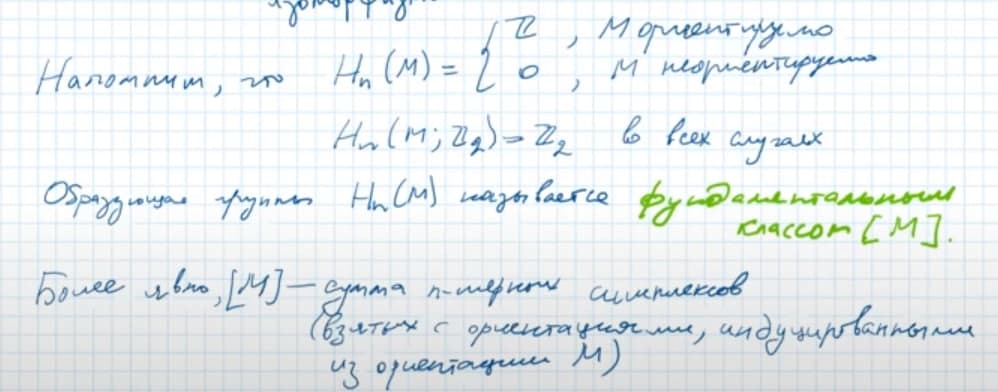 Напомним, что Hₙ(M) = { ℤ, M ориентируемо
0, M неориентируемо
Hₙ(M; ℤ₂) = ℤ₂ в всех случаях
Образующая группы Hₙ(M) называется фундаментальным
классом [M].
Более явно, [M] — сумма n-мерных симплексов
(взятых с ориентациями, индуцированными
из ориентации M)